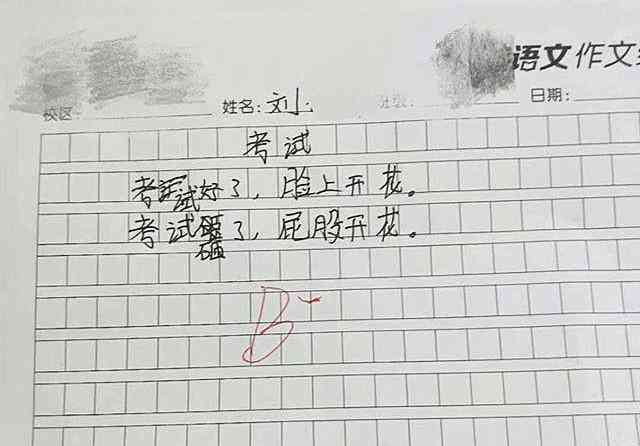 语文作文
校区: 姓名: 刘小 班级: 日期:
考试
考试好了，脸上开花。
考试砸了，屁股开花。
B-